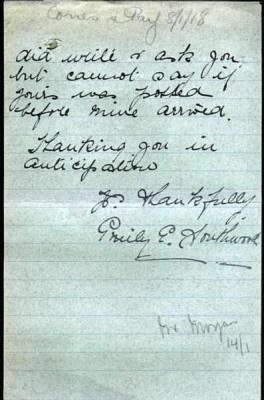 Corres & Pay 8/1/18
did write & ask you
but cannot say if
yours was posted
before mine arrived.
Thanking you in
anticipation
Yrs thankfully
Emily E. Southwood
Mr Morgan
14/1